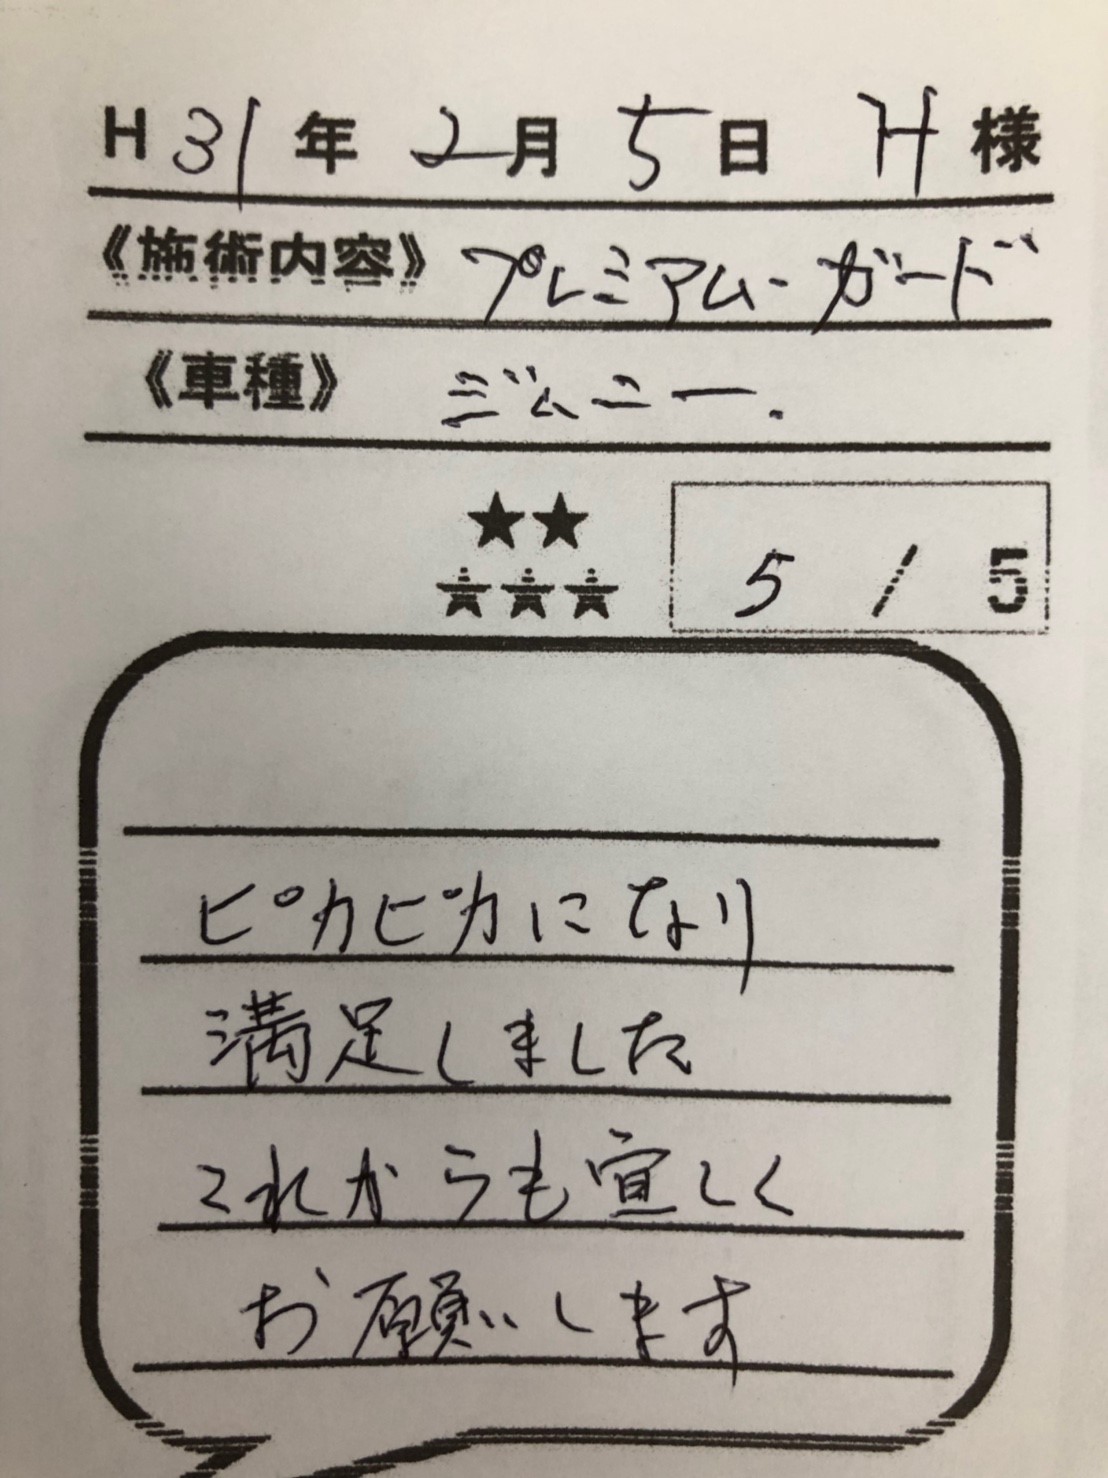 H 31 年 2月 5 日 H 様
《施術内容》 プレミアム・ガード
《車種》 ジムニー.
★★
★★★
5 / 5
ピカピカになり
満足しました
これからも宜しく
お願いします